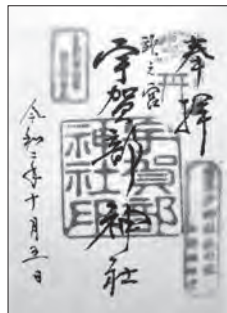 奉拝
頭之宮
宇賀部神社
宇賀部
神社印
令和二年十月五日